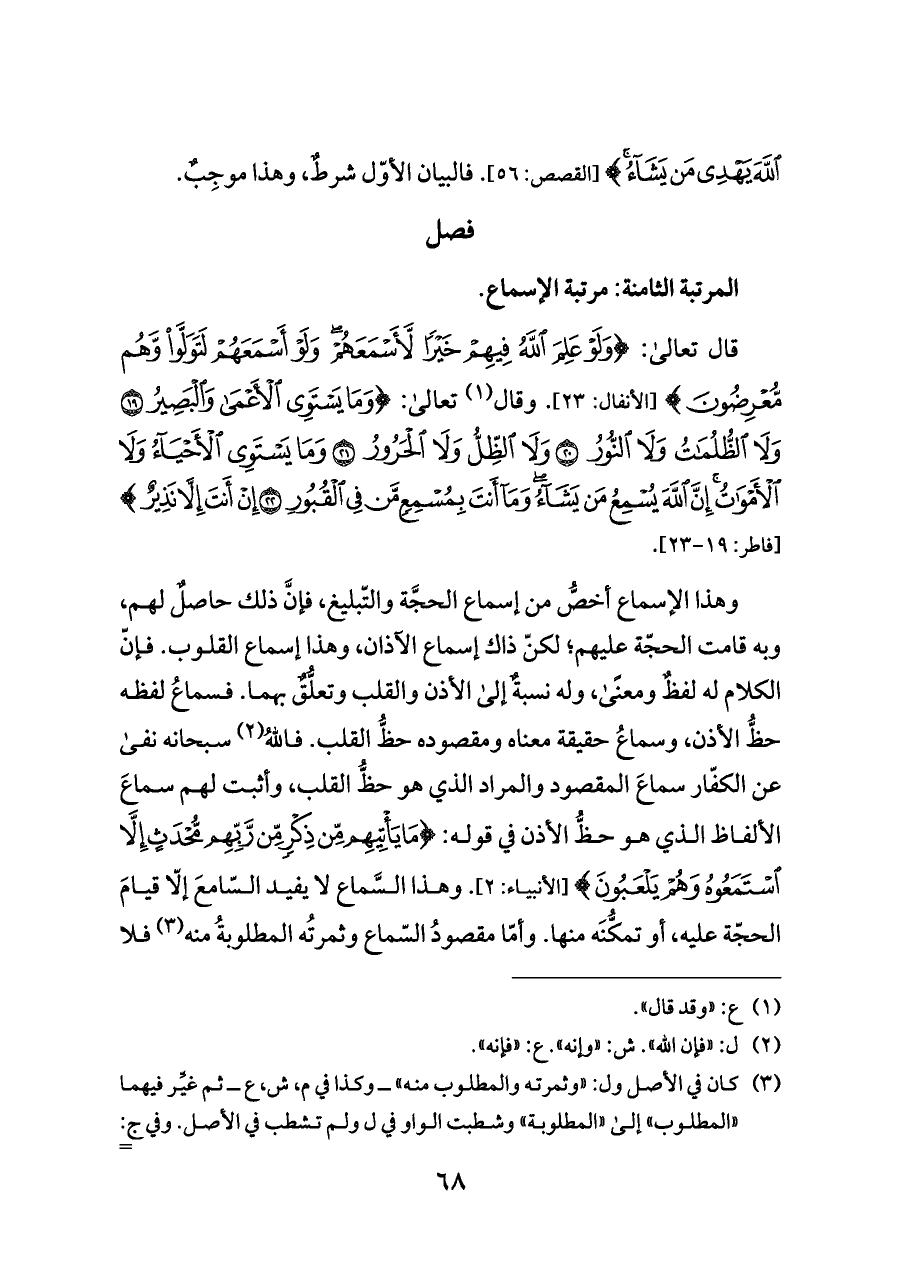 ٱللَّهَ يَهْدِى مَن يَشَآءُ﴾ [القصص: ٥٦]. فالبيان الأوّل شرطٌ، وهذا موجِبٌ.
فصل
المرتبة الثامنة: مرتبة الإسماع.
قال تعالىٰ: ﴿وَلَوْ عَلِمَ ٱللَّهُ فِيهِمْ خَيْرًا لَّأَسْمَعَهُمْ ۖ وَلَوْ أَسْمَعَهُمْ لَتَوَلَّوا۟ وَّهُم
مُّعْرِضُونَ﴾ [الأنفال: ٢٣]. وقال(١) تعالىٰ: ﴿وَمَا يَسْتَوِى ٱلْأَعْمَىٰ وَٱلْبَصِيرُ ۝١٩
وَلَا ٱلظُّلُمَٰتُ وَلَا ٱلنُّورُ ۝٢٠ وَلَا ٱلظِّلُّ وَلَا ٱلْحَرُورُ ۝٢١ وَمَا يَسْتَوِى ٱلْأَحْيَآءُ وَلَا
ٱلْأَمْوَٰتُ ۚ إِنَّ ٱللَّهَ يُسْمِعُ مَن يَشَآءُ ۖ وَمَآ أَنتَ بِمُسْمِعٍ مَّن فِى ٱلْقُبُورِ ۝٢٢ إِنْ أَنتَ إِلَّا نَذِيرٌ﴾
[فاطر: ١٩-٢٣].
وهذا الإسماع أخصُّ من إسماع الحجَّة والتّبليغ، فإنَّ ذلك حاصلٌ لهم،
وبه قامت الحجّة عليهم؛ لكنّ ذاك إسماع الآذان، وهذا إسماع القلوب. فإنّ
الكلام له لفظٌ ومعنًىٰ، وله نسبةٌ إلىٰ الأذن والقلب وتعلُّقٌ بهما. فسماعُ لفظه
حظُّ الأذن، وسماعُ حقيقة معناه ومقصوده حظُّ القلب. فاللهُ(٢) سبحانه نفىٰ
عن الكفّار سماعَ المقصود والمراد الذي هو حظُّ القلب، وأثبت لهم سماعَ
الألفاظ الذي هو حظُّ الأذن في قوله: ﴿مَا يَأْتِيهِم مِّن ذِكْرٍ مِّن رَّبِّهِم مُّحْدَثٍ إِلَّا
ٱسْتَمَعُوهُ وَهُمْ يَلْعَبُونَ﴾ [الأنبياء: ٢]. وهذا السَّماع لا يفيد السّامعَ إلّا قيامَ
الحجّة عليه، أو تمكُّنَه منها. وأمّا مقصودُ السّماع وثمرتُه المطلوبةُ منه(٣) فلا
(١) ع: «وقد قال».
(٢) ل: «فإن الله». ش: «وإنه». ع: «فإنه».
(٣) كان في الأصل ول: «وثمرته والمطلوب منه» ــ وكذا في م، ش، ع ــ ثم غيِّر فيهما
«المطلوب» إلىٰ «المطلوبة» وشطبت الواو في ل ولم تشطب في الأصل. وفي ج:
=
٦٨